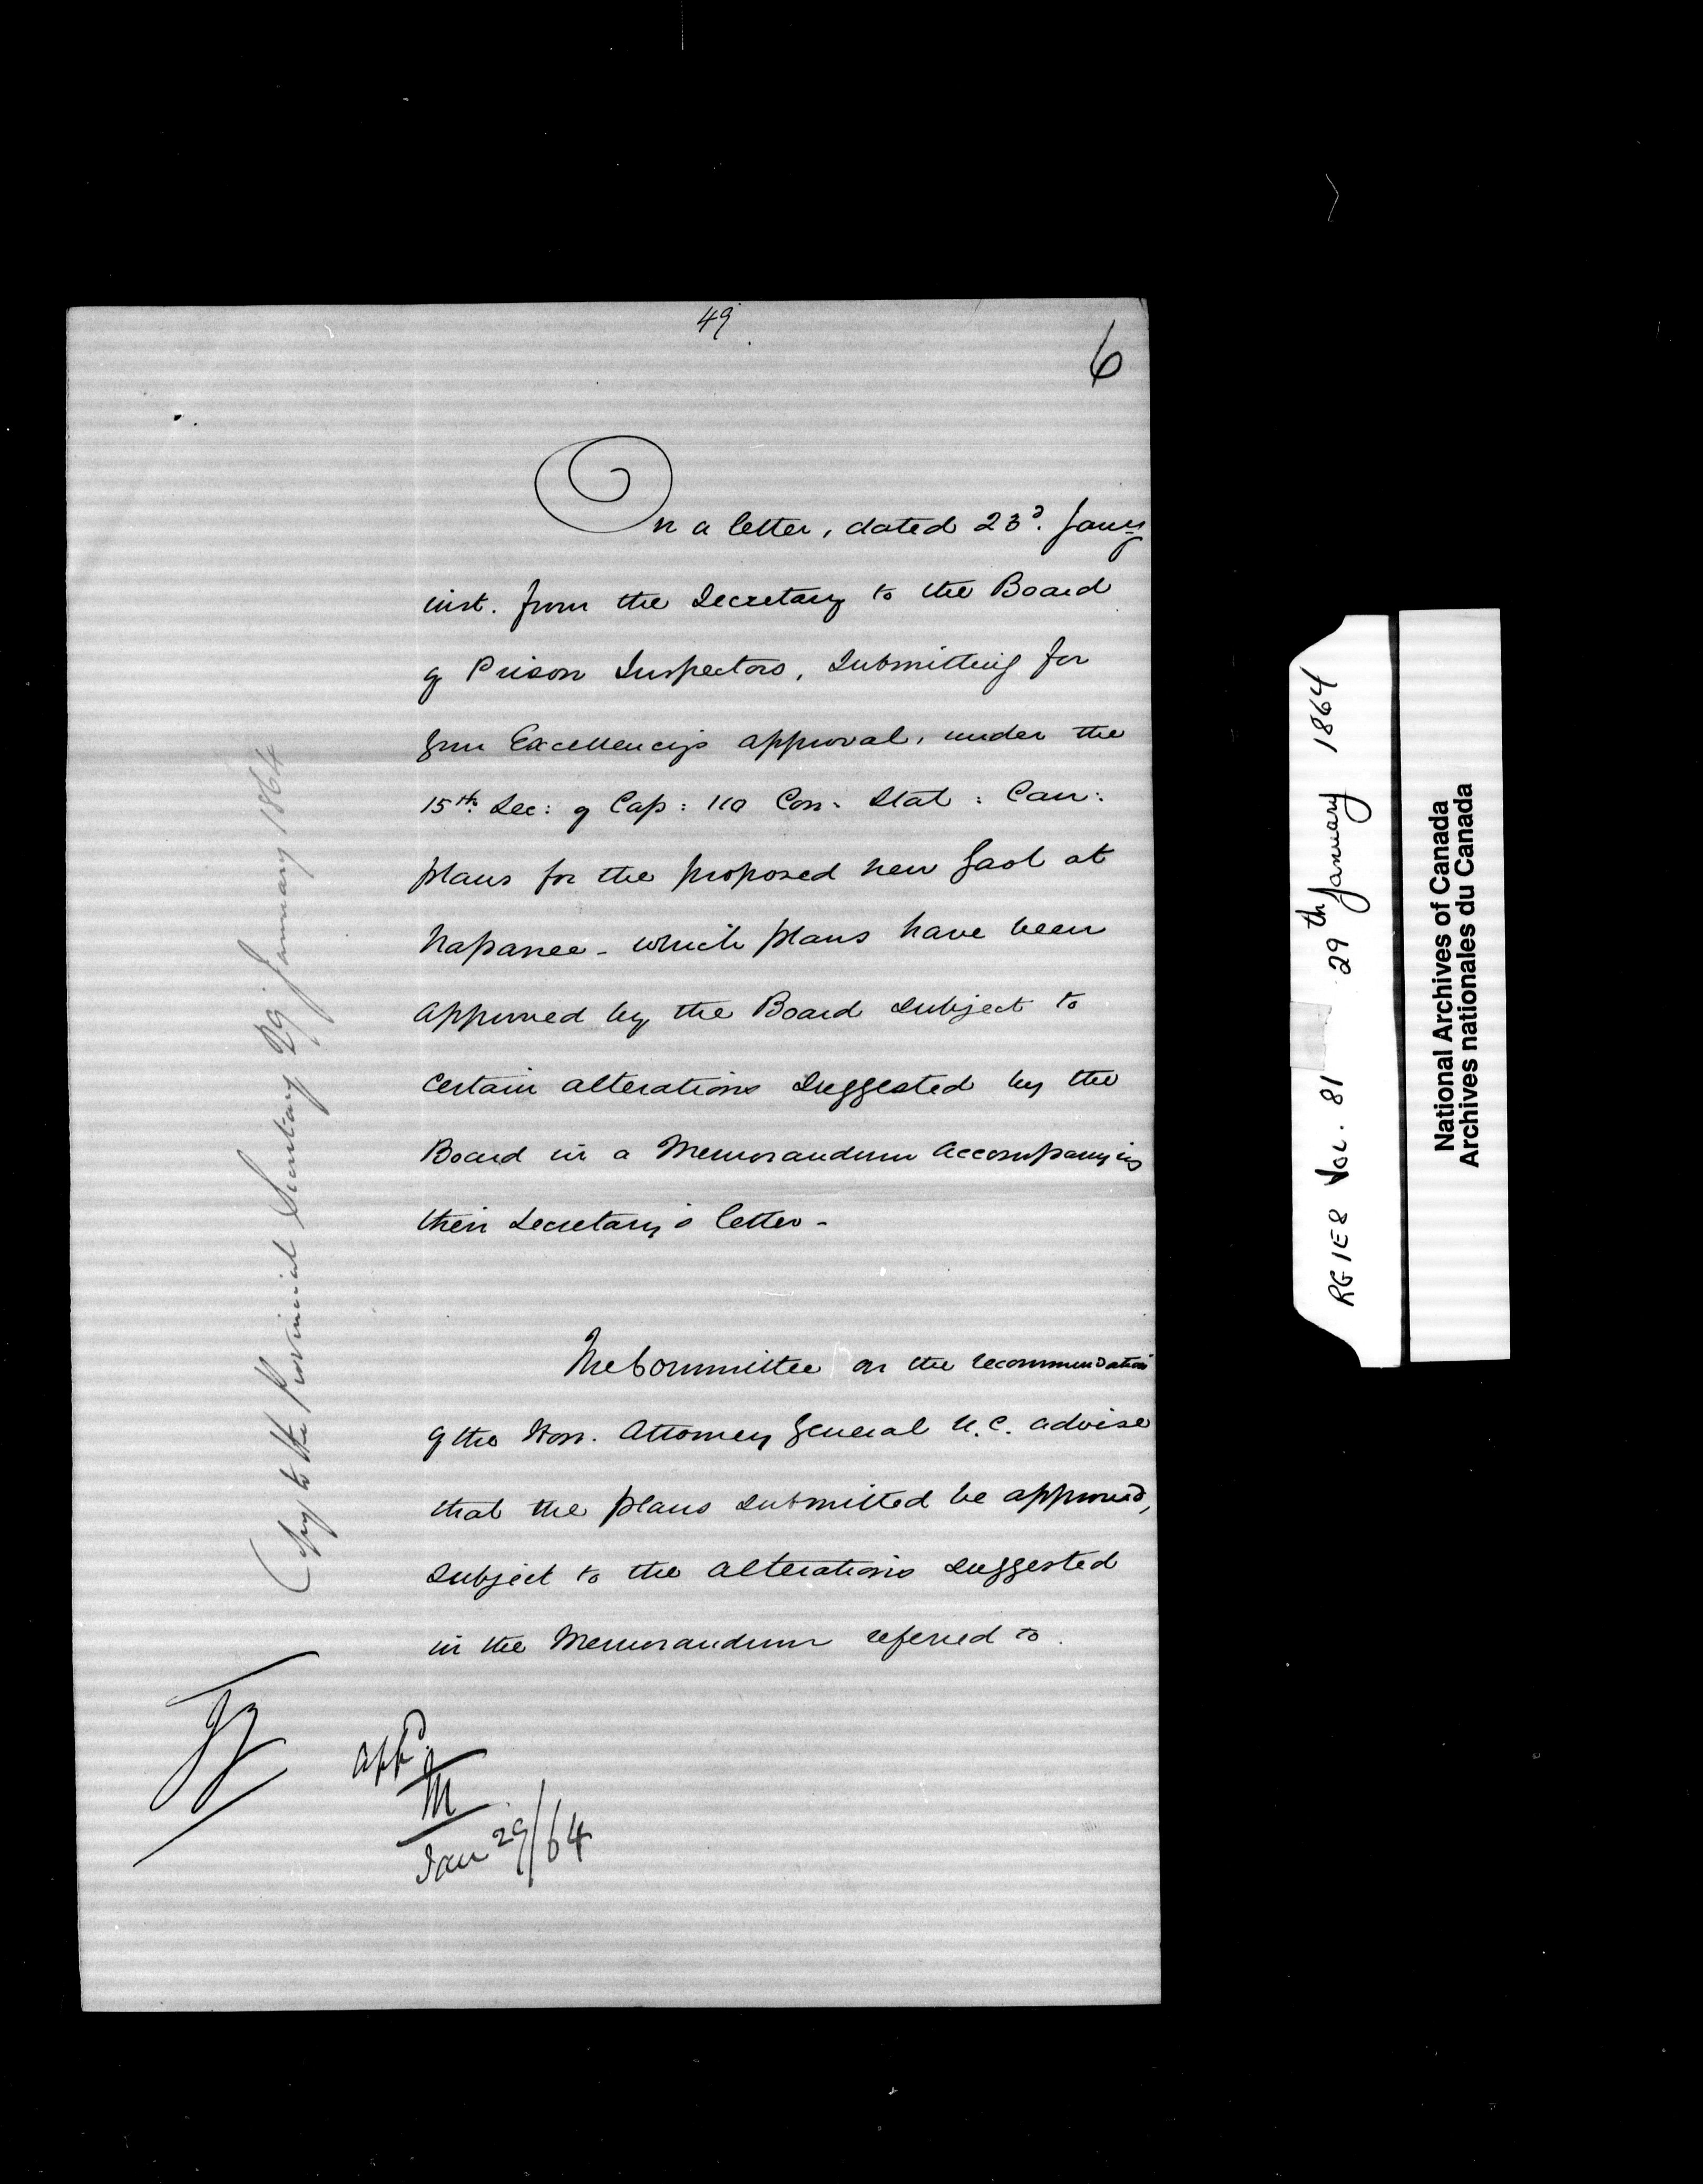 49
6
On a letter, dated 23d. Jany
inst. from the Secretary to the Board
of Prison Inspectors, Submitting for
Your Excellency's approval, under the
15th. Sec: of Cap: 110 Con. Stat: Can:
plans for the proposed new Gaol at
Napanee - which plans have been
approved by the Board subject to
certain alterations suggested by the
Board in a Memorandum accompanying
their Secretary's letter -
The Committee on the recommendation
of the Hon. Attorney General U.C. advise
that the plans submitted be approved,
subject to the alterations suggested
in the Memorandum referred to.
appd.
M
Jan 29/64
Copy to the Provincial Secretary 29 January 1864
RG 1E8 Vol. 81 29th January 1864
National Archives of Canada
Archives nationales du Canada